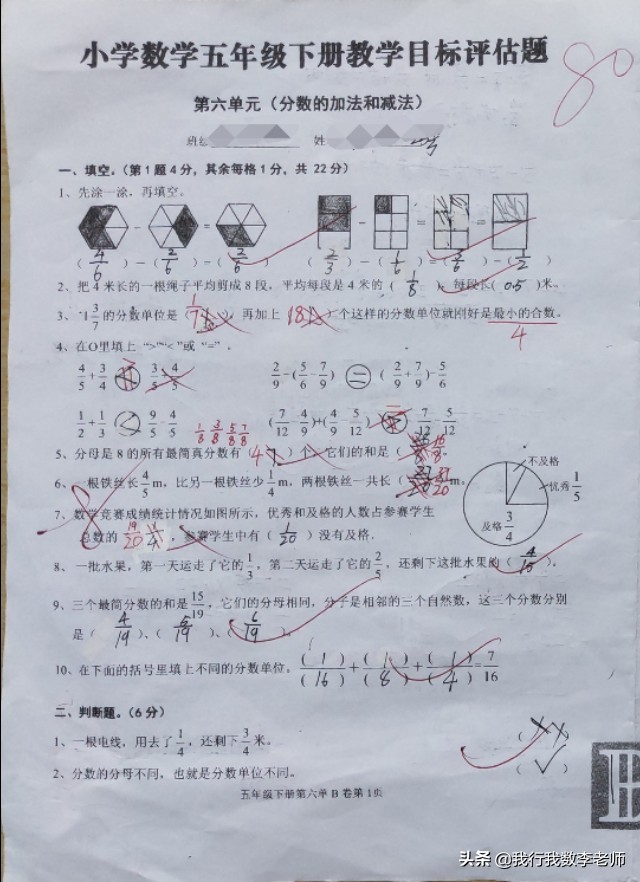 小学数学五年级下册教学目标评估题
80
第六单元（分数的加法和减法）
班级 姓 号
一、填空。（第1题4分，其余每格1分，共 22分）
1、先涂一涂，再填空。
- = - = -
（4/6）-（2/6）-（2/6） （2/3）-（1/6）=（3/6）-（1/2）
2、把4米长的一根绳子平均剪成8段，平均每段是4米的（1/8），每段长（0.5）米。
3、1 3/7 的分数单位是（1/7），再加上（18）个这样的分数单位就刚好是最小的合数。
4
4、在O里填上 “>”“<”或 “=” 。
4/5+3/4 = 3/5+4/5 2/9-(5/6-7/9) = (2/9+7/9)-5/6
1/2+1/3 < 9/5-4/5 (7/12-4/9)+(4/9-5/12) = 7/12-5/12
1/8 3/8 5/8 7/8
5、分母是8的所有最简真分数有（4）个，它们的和是（16/8）
6、一根铁丝长4/5m，比另一根铁丝少1/4m，两根铁丝一共长（37/20）m。
不及格
优秀1/5
及格3/4
7、数学竞赛成绩统计情况如图所示，优秀和及格的人数占参赛学生
总数的 19/20，参赛学生中有（1/20）没有及格.
-8
8、一批水果，第一天运走了它的1/3，第二天运走了它的2/5，还剩下这批水果的（4/15）。
9、三个最简分数的和是15/19，它们的分母相同，分子是相邻的三个自然数，这三个分数分别
是（4/19）、（5/19）、（6/19）。
10、在下面的括号里填上不同的分数单位。(1)/(16)+(1)/(8)+(1)/(4)=7/16
二、判断题。（6分）
1、一根电线，用去了1/4，还剩下3/4米。 （×）
2、分数的分母不同，也就是分数单位不同。 （√）
五年级下册第六单 B 卷第1页
B
头条 @我行我数李老师